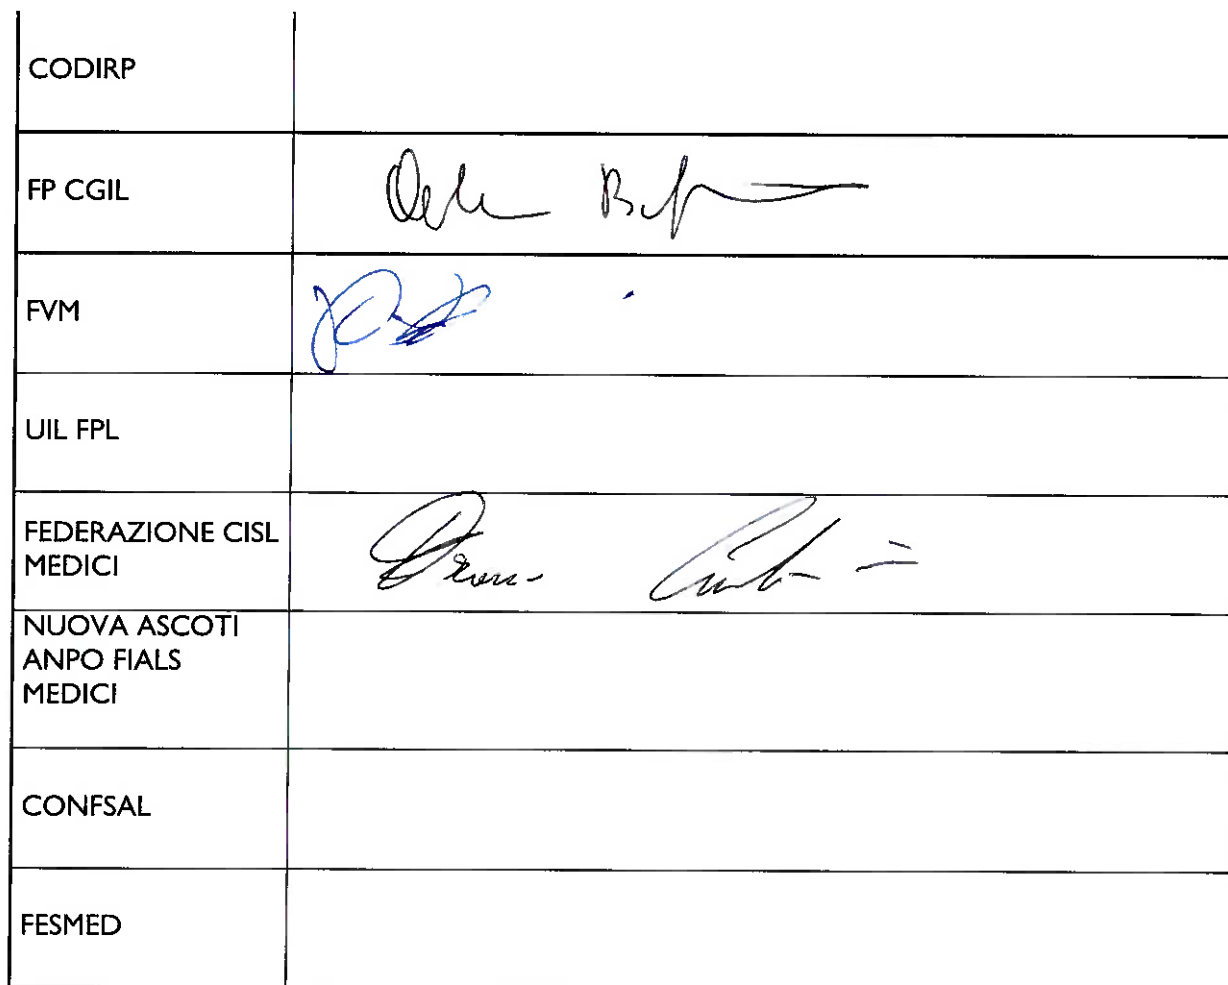 CODIRP
FP CGIL
FVM
UIL FPL
FEDERAZIONE CISL
MEDICI
NUOVA ASCOTI
ANPO FIALS
MEDICI
CONFSAL
FESMED